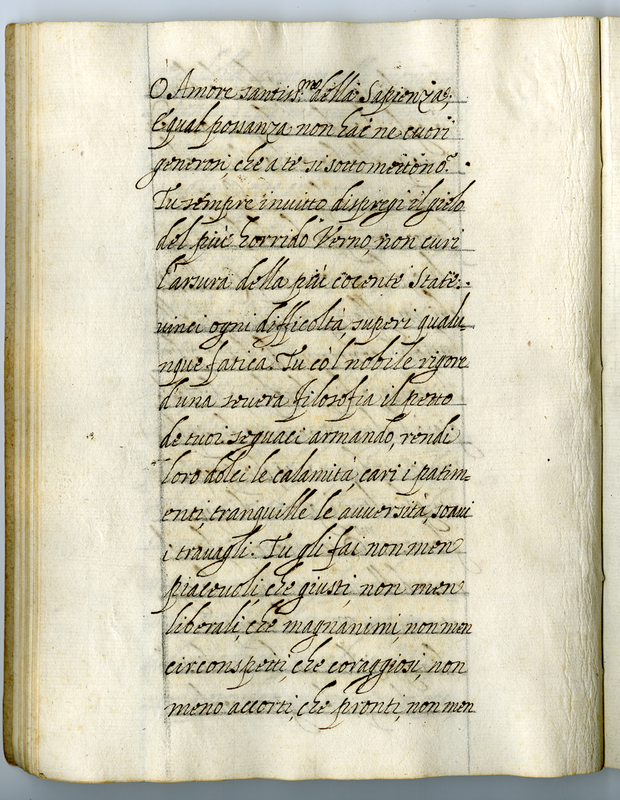 O Amore santiss.mo della Sapienza,
e qual possanza non hai ne cuori
generosi che a te si sottomettono?
Tu sempre invitto dispregi il gielo
del più horrido Verno, non curi
l'arsura della più cocente State:
vinci ogni difficoltà, superi qualu-
nque fatica. Tu co'l nobile rigore
d'una severa filosofia il petto
de tuoi seguaci armando, rendi
loro dolci le calamità, cari i patim-
enti, tranquille le avversità, soavi
i travagli. Tu gli fai non men
piacevoli, che giusti, non men
liberali, che magnanimi, non men
circonspetti, che coraggiosi, non
meno accorti, che pronti, non men